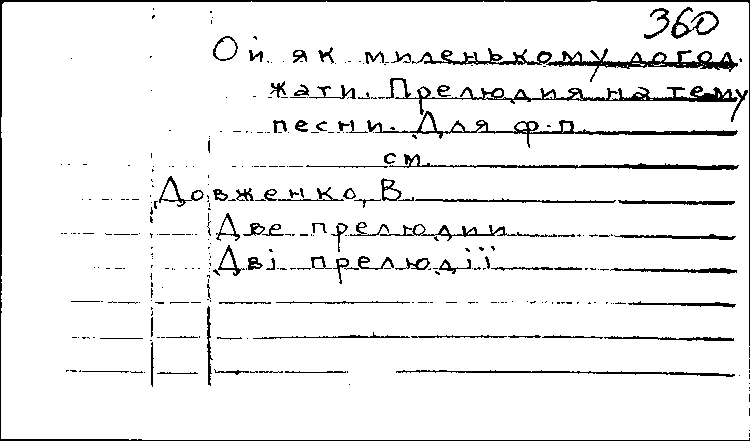 360
Ой як миленькому догод.
жати. Прелюдия на тему
песни. Для ф-п.
см.
Довженко, В.
Две прелюдии.
Дві прелюдії